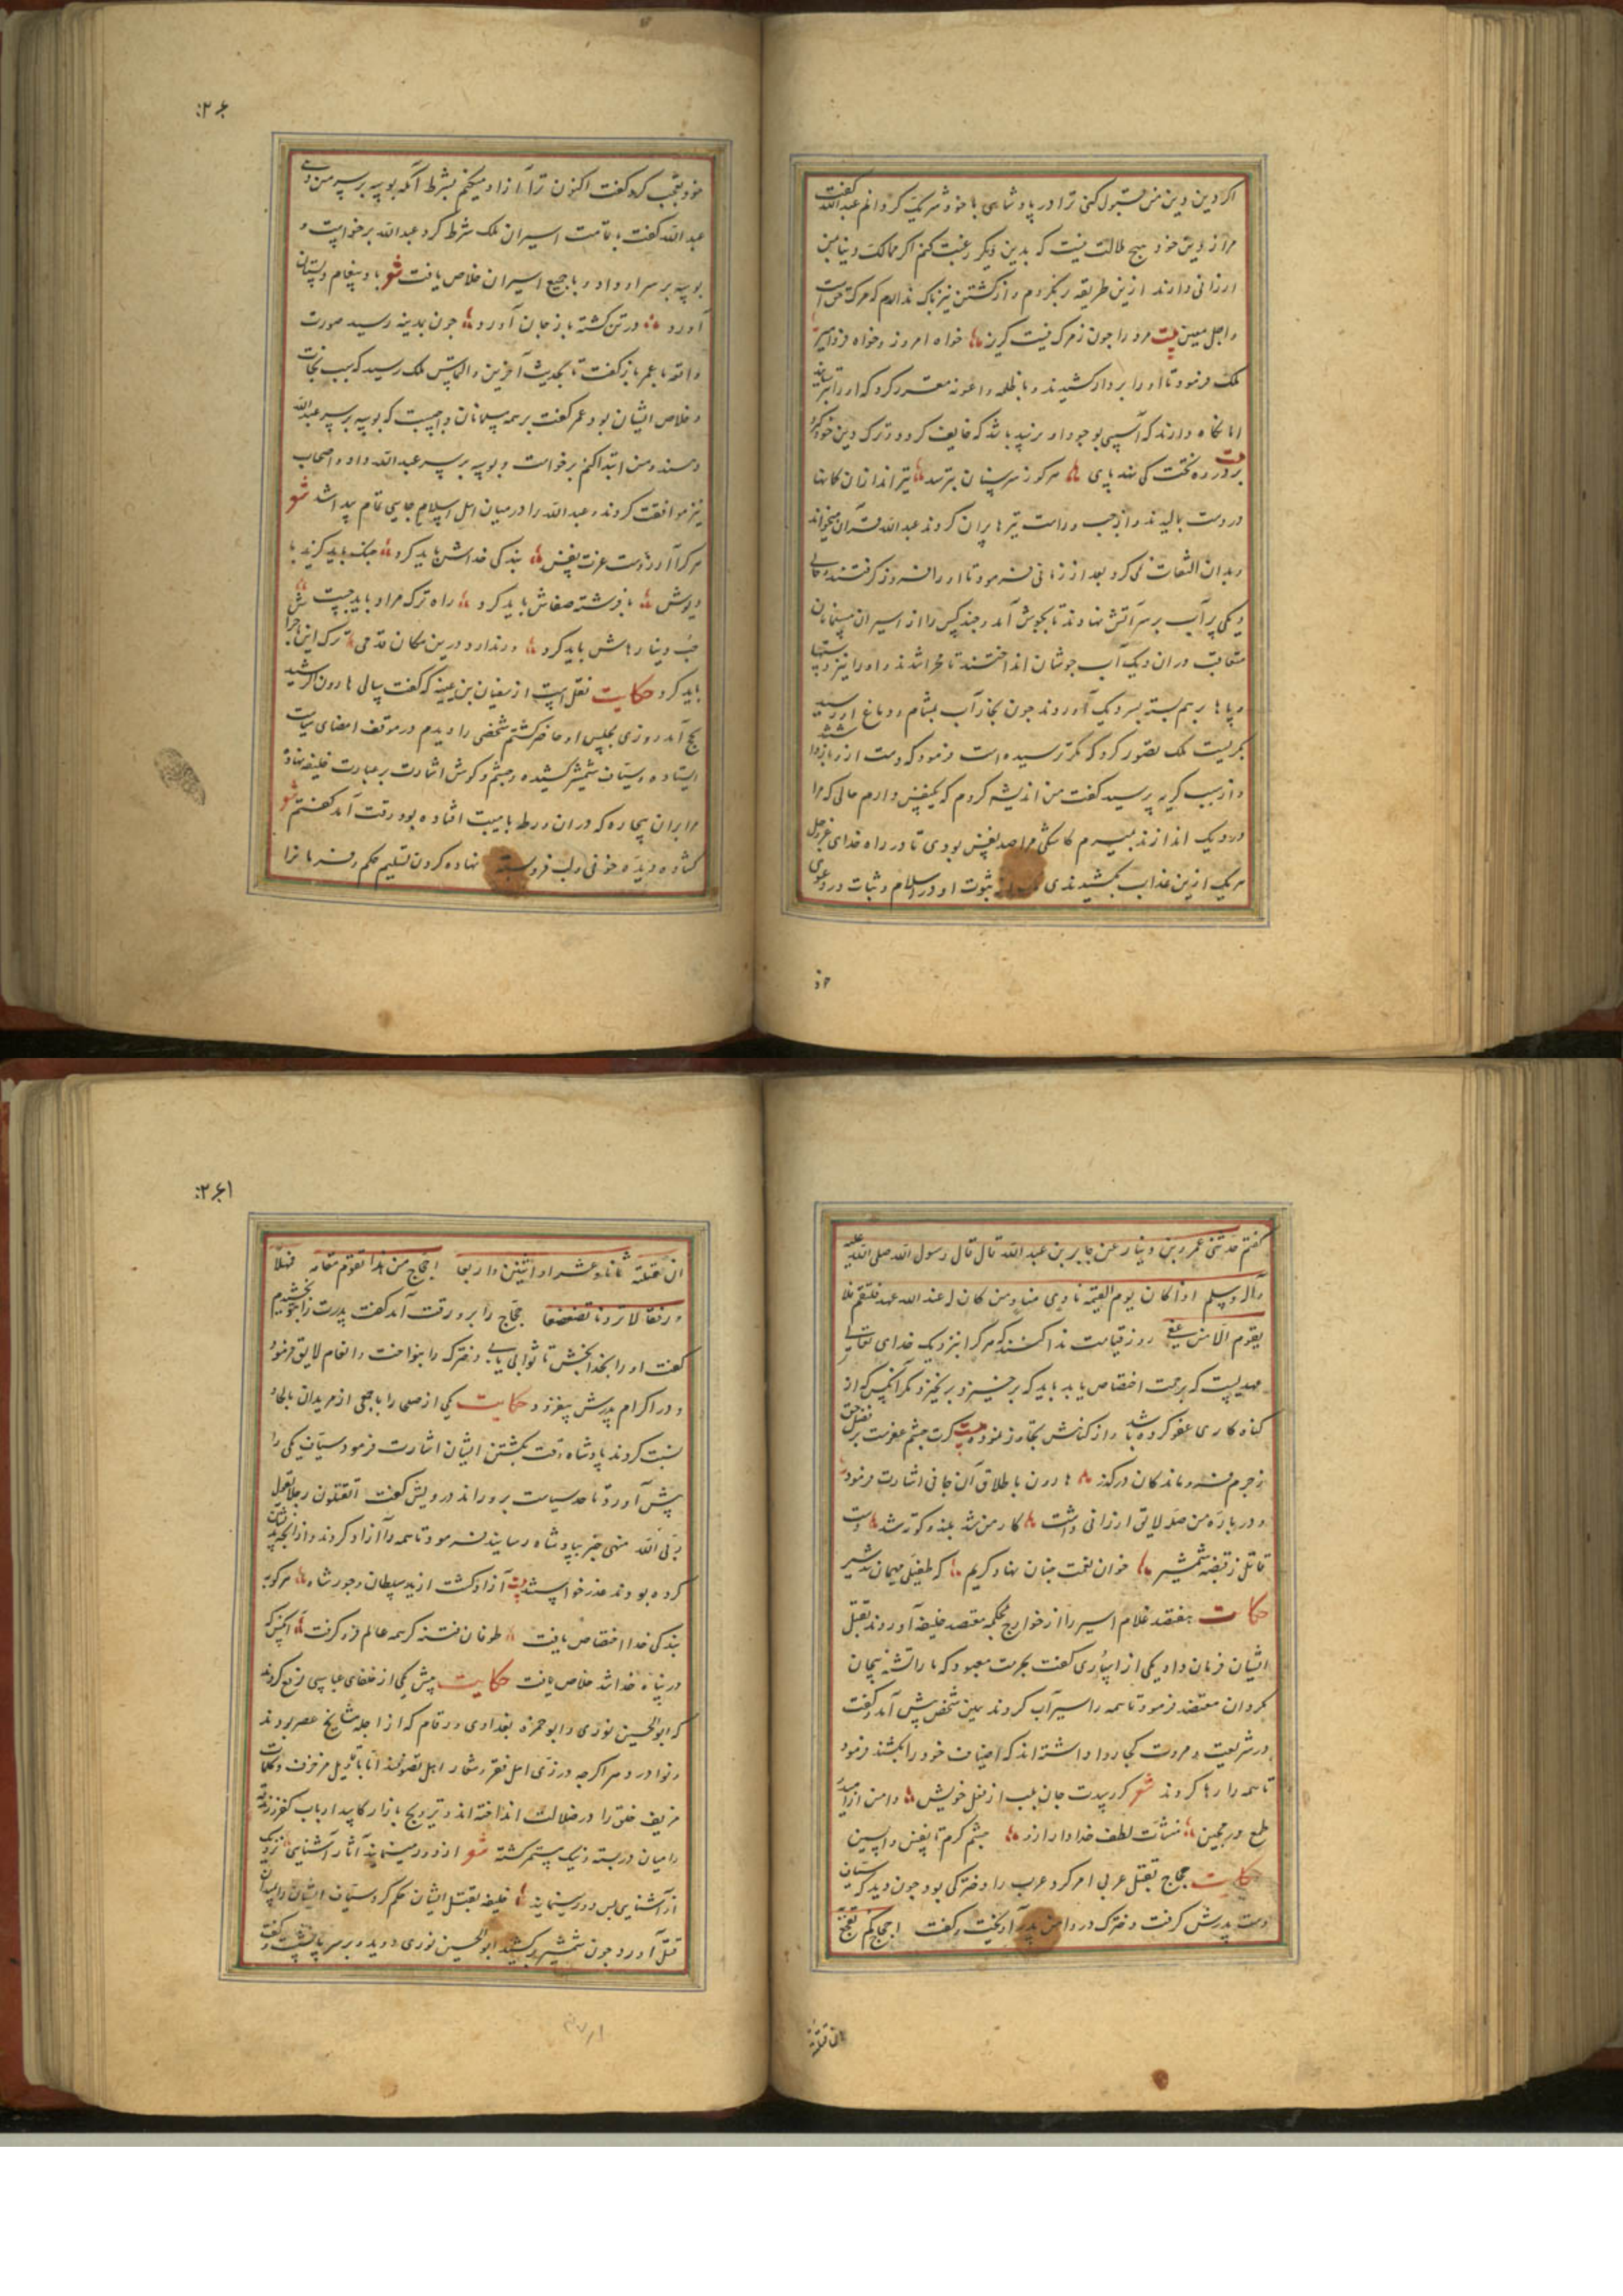 اگر دین و دین من قبول کنی ترا در پادشاهی با خود شریک گردانم عبدالله گفت
مرا از دین خود هیچ ملالت نیست که بدین دیگر رغبت کنم اگر ممالک دنیا بمن
ارزانی دارند ازین طریقه برنگردم و از کشتن نیز باک ندارم که مرگ حق است
و اجل معین بیت مرد را چون ز مرگ نیست گریز خواه امروز و خواه فردا میر
ملک فرمود تا او را بر دار کشیدند و با ظلمه و اعونه مقرر کرد که او را تیر
اما نگاه دارند که آسیبی بوجود او نرسد باشد که خایف گردد و ترک دین خود کند
بیت در ره نخت کی نهد پای هر کو ز سر سنان بترسد تیراندازان کمانها
در دست بالیدند و از چپ و راست تیر باران کردند عبدالله قرآن میخواند
و بدان التفات نمی کرد بعد از زمانی فرمود تا او را فرود گرفتند و
دیگی پر آب بر سر آتش نهادند تا بجوش آمد و چند کس را از اسیران مسلمانان
متعاقب در ان دیگ آب جوشان انداختند تا مهرا شدند و او را نیز دستها
و پاها بر هم بسته بسر دیگ آوردند چون بخار آب بمشام و دماغ او رسید
بگریست ملک تصور کرد که مگر ترسیده است فرمود که دست ازو باز دارند
و از سبب گریه پرسید گفت من اندیشه کردم که یکنفس دارم حالی که مرا
در دیگ اندازند بمیرم کاشکی مرا صد نفس بودی تا در راه خدای عزوجل
هر یک ازین عذاب بکشیدندی ثبوت او در اسلام و ثبات در دعوی
خو
۲۶۰
خود تعجب کرد گفت اکنون ترا آزاد میکنم بشرط آنکه بوسه بر سر من دهی
عبدالله گفت با تمامت اسیران ملک شرط کرد عبدالله برخواست و
بوسه بر سر او داد و با جمیع اسیران خلاص یافت شعر باد پیغام دوستان
آورد در تن کشته باز جان آورد چون بمدینه رسید صورت
واقعه با عمر باز گفت تا بحدیث آخرین و التماس ملک رسید که سبب نجات
و خلاص ایشان بود عمر گفت بر همه مسلمانان واجبست که بوسه بر سر عبدالله
دهند و من ابتدا کنم برخواست و بوسه بر سر عبدالله داد و اصحاب
نیز موافقت کردند و عبدالله را در میان اهل اسلام جاهی تمام پیدا شد شعر
هر کرا آرزوست عزت نفس بندگی خداش باید کرد جنگ باید گزید با
دیوش با فرشته صفاش باید کرد راه ترک مراد باید جست
حب دنیا رهاش باید کرد ور ندارد درین مکان قدمی ترک این ماجرا
باید کرد حکایت نقل است از سفیان بن عیینه که گفت سالی هارون الرشید
بحج آمد روزی بمجلس او حاضر گشتم شخصی را دیدم در موقف امضای سیاست
ایستاده و سیاف شمشیر کشیده و چشم و گوش اشارت بر عبارت خلیفه نهاده
مرا بران بیچاره که در ان ورطه با هیبت افتاده بود رقت آمد گفتم شعر
گشاده دیده خوفی و لب فرو بسته نهاده گردن تسلیم حکم و فرمانرا
گفتم حدثنی عمرو بن دینار عن جابر بن عبدالله قال قال رسول الله صلی الله علیه
وآله وسلم اذا کان یوم القیمه نادی مناد من کان له عند الله عهد فلیقم فلا
یقوم الا من عفی روز قیامت ندا کنند که هر کرا بنزدیک خدای تعالی
عهدیست که برحمت اختصاص یابد باید که برخیزد بر نخیزد مگر آنکس که از
گناه کاری عفو کرده باشد و از گناهش تجاوز نموده بیت گرت چشم عفوست بر فضل حق
ز جرم فروماندگان درگذر هارون باطلاق آن جانی اشارت فرمود
و درباره من صله لایق ارزانی داشت کار من شد بلند و کوته شد دست
قاتل ز قبضه شمشیر خوان نعمت چنان نهاد کریم که طفیلی میهمان شد سیر
حکایت هفتصد غلام اسیر را از خوارج بمحکمه معتصد خلیفه آوردند بقتل
ایشان فرمان داد یکی از اساری گفت بحرمت معبود که ما را تشنه بیجان
مگردان معتضد فرمود تا همه را سیرآب کردند همین شخص پیش آمد و گفت
در شریعت و مروت کجا روا داشته اند که اضیاف خود را بکشند فرمود
تا همه را رها کردند شعر گر رسیدت جان بلب از فعل خویش دامن از امید
طمع در مچین منشآت لطف خدا دارد ازو چشم کرم تا نفس واپسین
حکایت حجاج بقتل عربی امر کرد عرب را دخترکی بود چون دید که سیاف
دست پدرش گرفت دخترک در دامن پدر آویخت و گفت احجاج کم تفجع
ان قتلته
۲۶۱
ان قتلته ثمانا و عشرا و اثنتین و اربعا احجاج من هذا تقوم مقامه فهلا
و رفقا لا تزدنا تضعضعا حجاج را برو رقت آمد گفت پدرت را بتو بخشیدم
گفت او را بخدا بخش تا ثوابی یابی دخترک را بنواخت و انعام لایق فرمود
و در اکرام پدرش بیفزود حکایت یکی از صلحا را با جمعی از مریدان بالحاد
نسبت کردند پادشاه وقت بکشتن ایشان اشارت فرمود سیاف یکی را
پیش آورد تا حد سیاست برو راند درویش گفت اتقتلون رجلا یقول
ربی الله منهی خبر بپادشاه رسانید فرمود تا همه را آزاد کردند و از آنچه بدیشان
کرده بودند عذر خواستند بیت آزاد گشت از ید سلطان و جور شاه هر کو به
بندگی خدا اختصاص یافت طوفان فتنه گر همه عالم فرو گرفت آنکس که
در پناه خدا شد خلاص یافت حکایت پیش یکی از خلفای عباسی رفع کردند
که ابوالحسین نوری و ابوحمزه بغدادی و رقام که از اجله مشایخ عصر بودند
و نوادر دهر اگرچه در زی اهل فقر و شعار اهل تصوفند اما باقاویل مزخرف و کلمات
مزیف خلق را در ضلالت انداخته اند و ترویج بازار کاسد ارباب کفر و زندقه
را میان در بسته و نیک پیگیر گشته شعر از دور مینمایند آثار آشنایی نزدیک
از آشنایی بس دور مینمایند خلیفه بقتل ایشان حکم کرد سیاف ایشان را بمیدان
قتل آورد چون شمشیر برکشید ابوالحسین نوری دوید و بر سر پا نشست و گفت